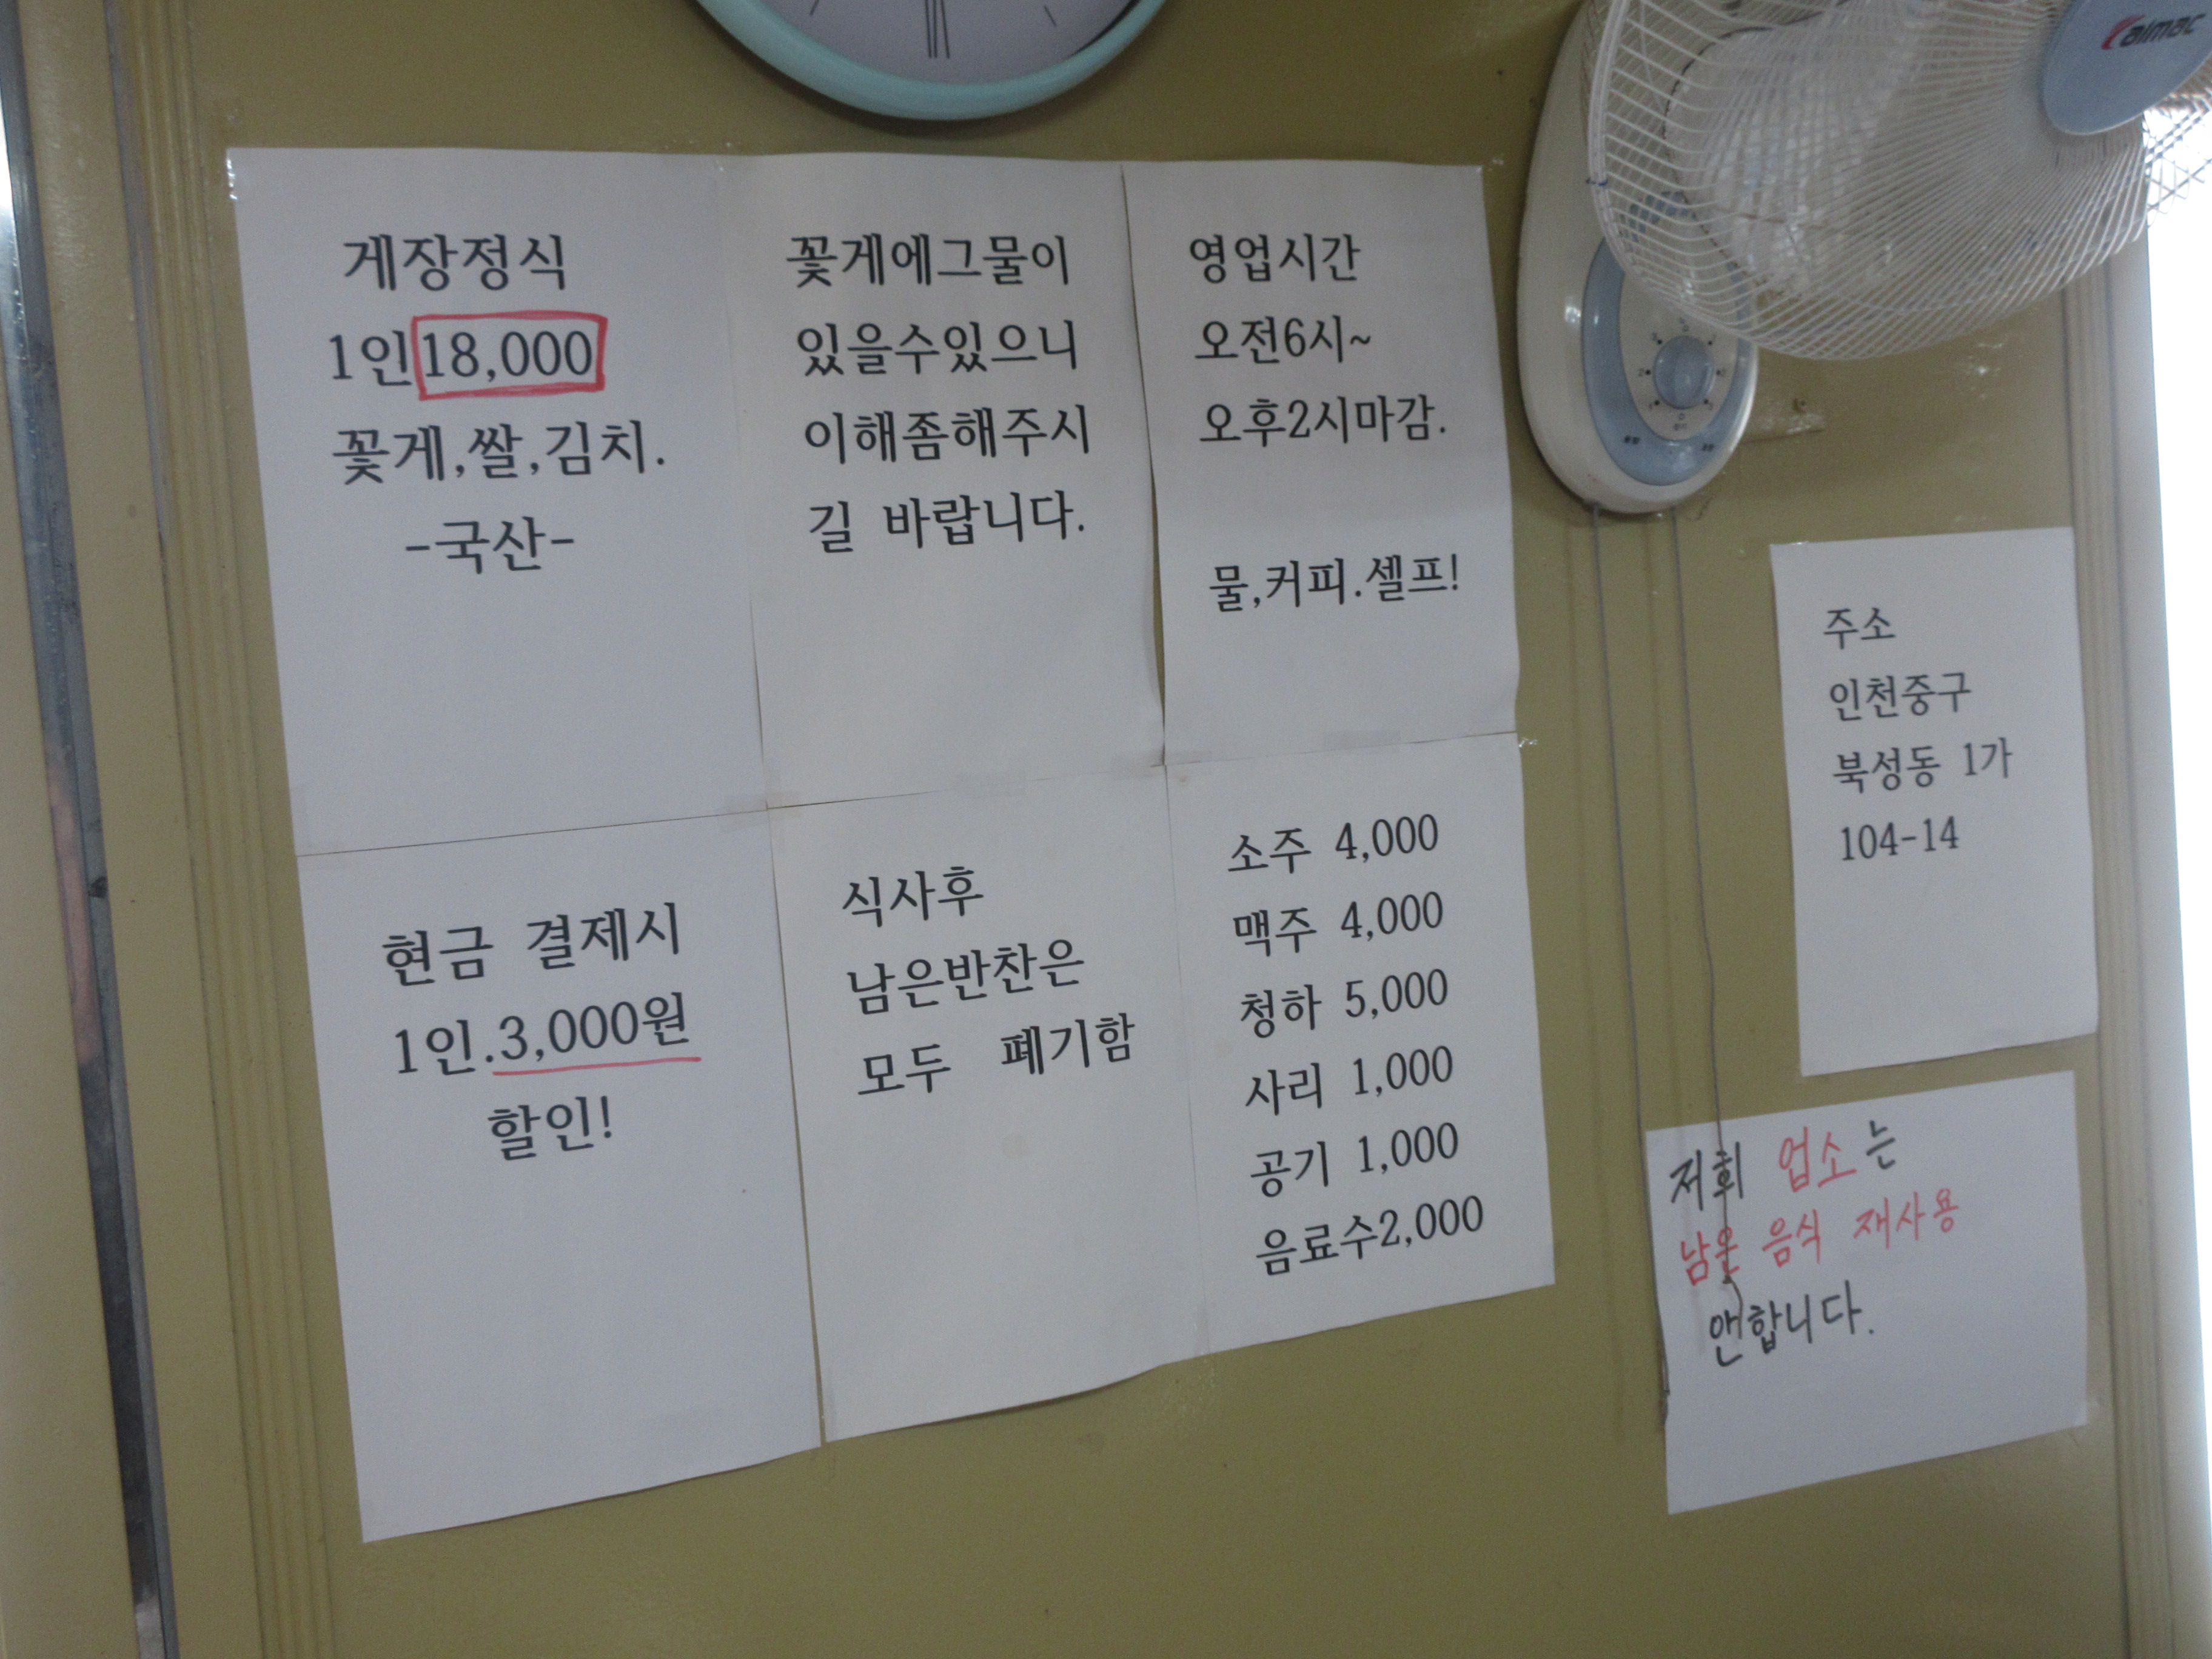 게장정식
1인 18,000
꽃게,쌀,김치.
-국산-
꽃게에그물이
있을수있으니
이해좀해주시
길 바랍니다.
영업시간
오전6시~
오후2시마감.
물,커피.셀프!
현금 결제시
1인.3,000원
할인!
식사후
남은반찬은
모두 폐기함
소주 4,000
맥주 4,000
청하 5,000
사리 1,000
공기 1,000
음료수2,000
주소
인천중구
북성동 1가
104-14
저희 업소는
남은 음식 재사용
안합니다.